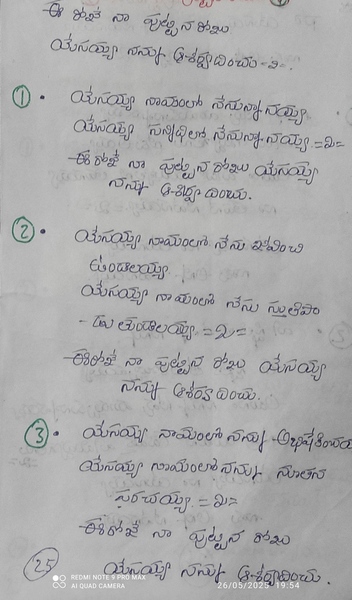 ఈ రోజే నా పుట్టిన రోజు
యేసయ్య నన్ను ఆశీర్వదించు -౨-
① • యేసయ్య నామంలో నేనున్నానయ్య
యేసయ్య సన్నిధిలో నేనున్నానయ్య =౨=
ఈ రోజే నా పుట్టిన రోజు యేసయ్య
నన్ను ఆశీర్వదించు.
② • యేసయ్య నామంలో నేను జీవించి
ఉండాలయ్య
యేసయ్య నామంలో నేను స్తుతిపా
-డు తుండాలయ్య =౨=
ఈ రోజే నా పుట్టిన రోజు యేసయ్య
నన్ను ఆశీర్వదించు.
③ • యేసయ్య నామంలో నన్ను అభిషేకించయ
యేసయ్య నామంలో నన్ను నూతన
పరచయ్య =౨=
ఈ రోజే నా పుట్టిన రోజు
25 యేసయ్య నన్ను ఆశీర్వదించు.
REDMI NOTE 9 PRO MAX
AI QUAD CAMERA
26/05/2025 19:54